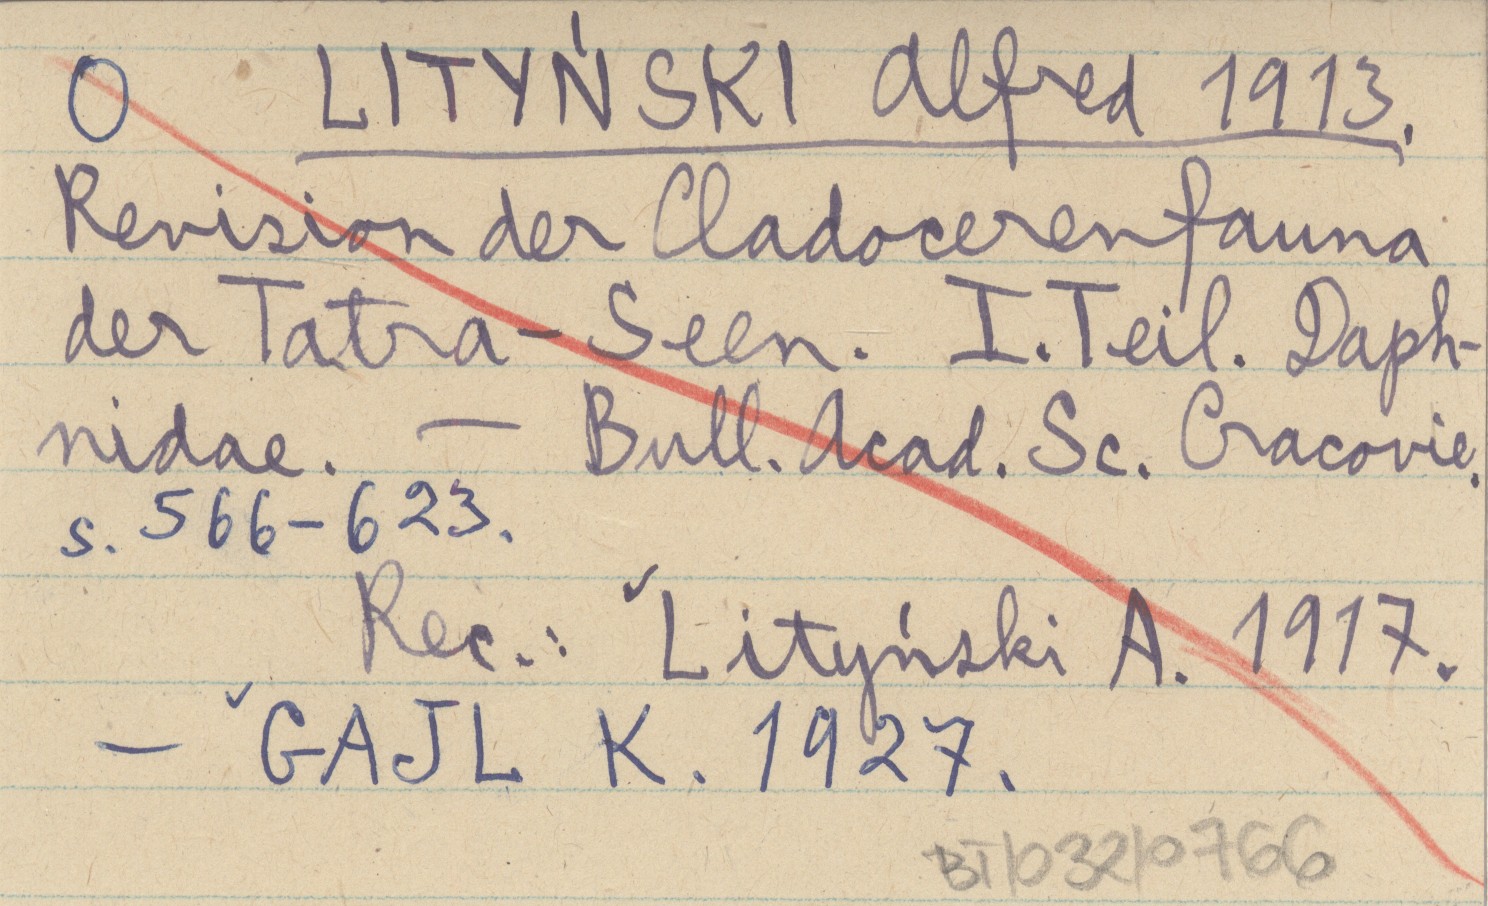 O LITYŃSKI Alfred 1913.
Revision der Cladocerenfauna
der Tatra-Seen. I. Teil. Daph-
nidae. — Bull. Acad. Sc. Cracovie.
s. 566-623.
Rec.: ✓Lityński A. 1917.
— ✓GAJL K. 1927.
BT/032/0766